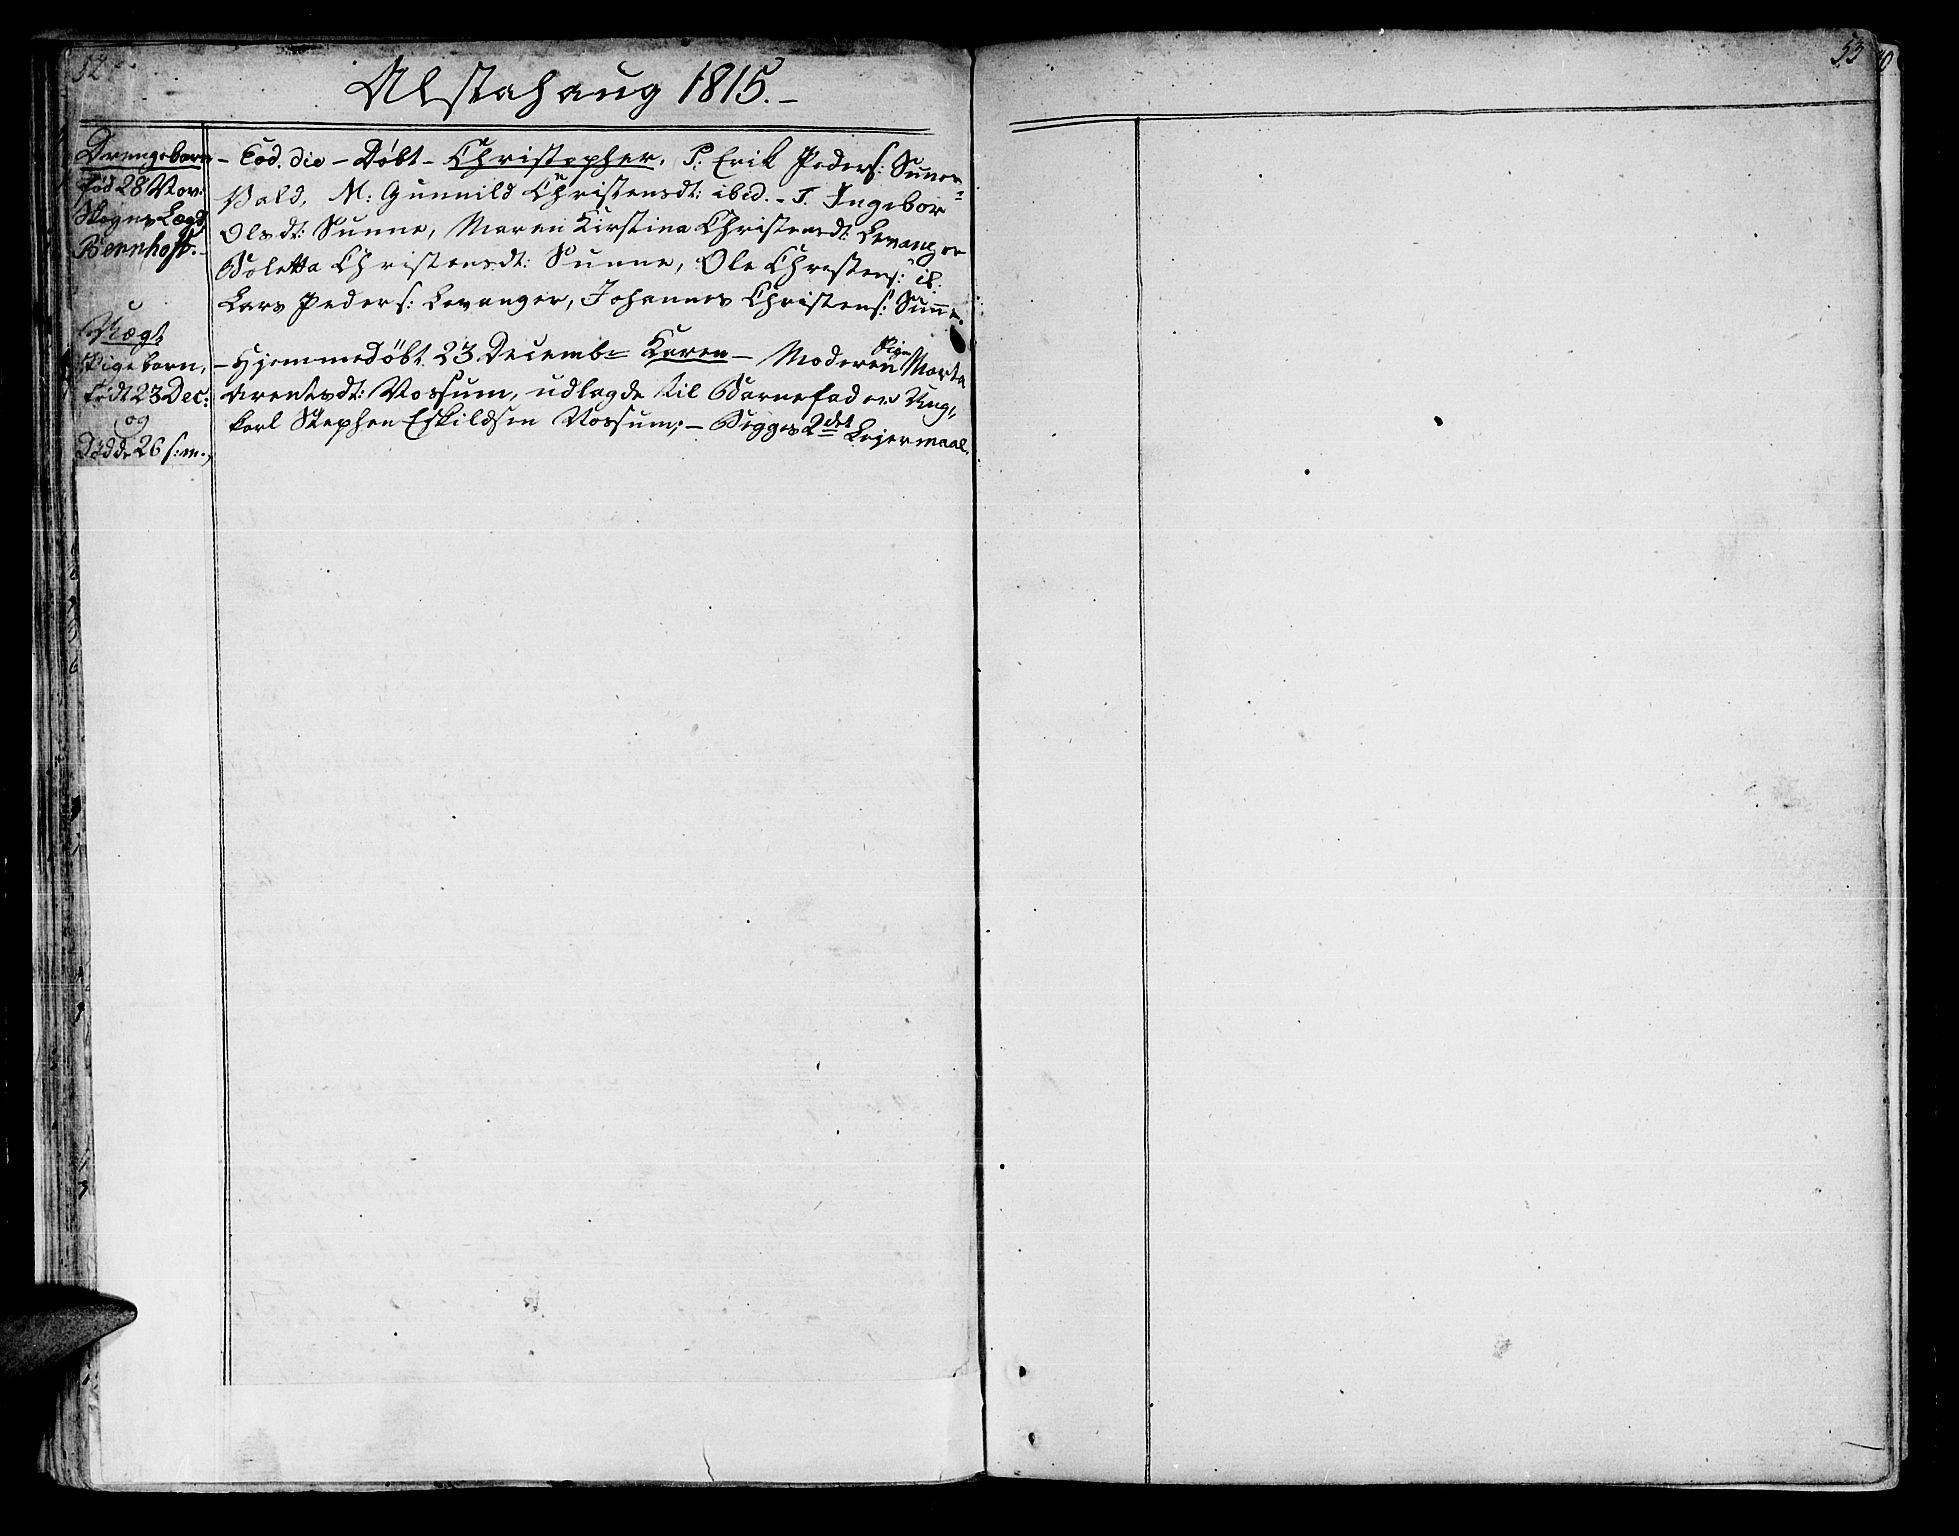 52
Alstahaug 1815.-
Drengebarn
fød 28 Nov:
Skogns Lægd
Bernhoft.-
- Eod. die - Døbt - Christopher. P. Erik Peders: Sunor-
Vald, M: Gunnild Christensdt: ibid. - T. Ingebor
Olsdt: Sunne, Maren Kirstina Christensdt: Levanger
Boletta Christensdt: Sunne, Ole Christens: ib:
Lars Peders: Levanger, Johannes Christens: Sunne.
Uægt
Pigebarn,
født 23 Dec:
og
Dødde 26 s:m.,
- Hjemmedøbt 23 Decembr Karen - Moderen Pige Marta
Arentsdt: Nossum, udlagde til Barnefader Ung-
karl Stephen Eskildsen Nossum; - Begges 2det Leiermaal.
53